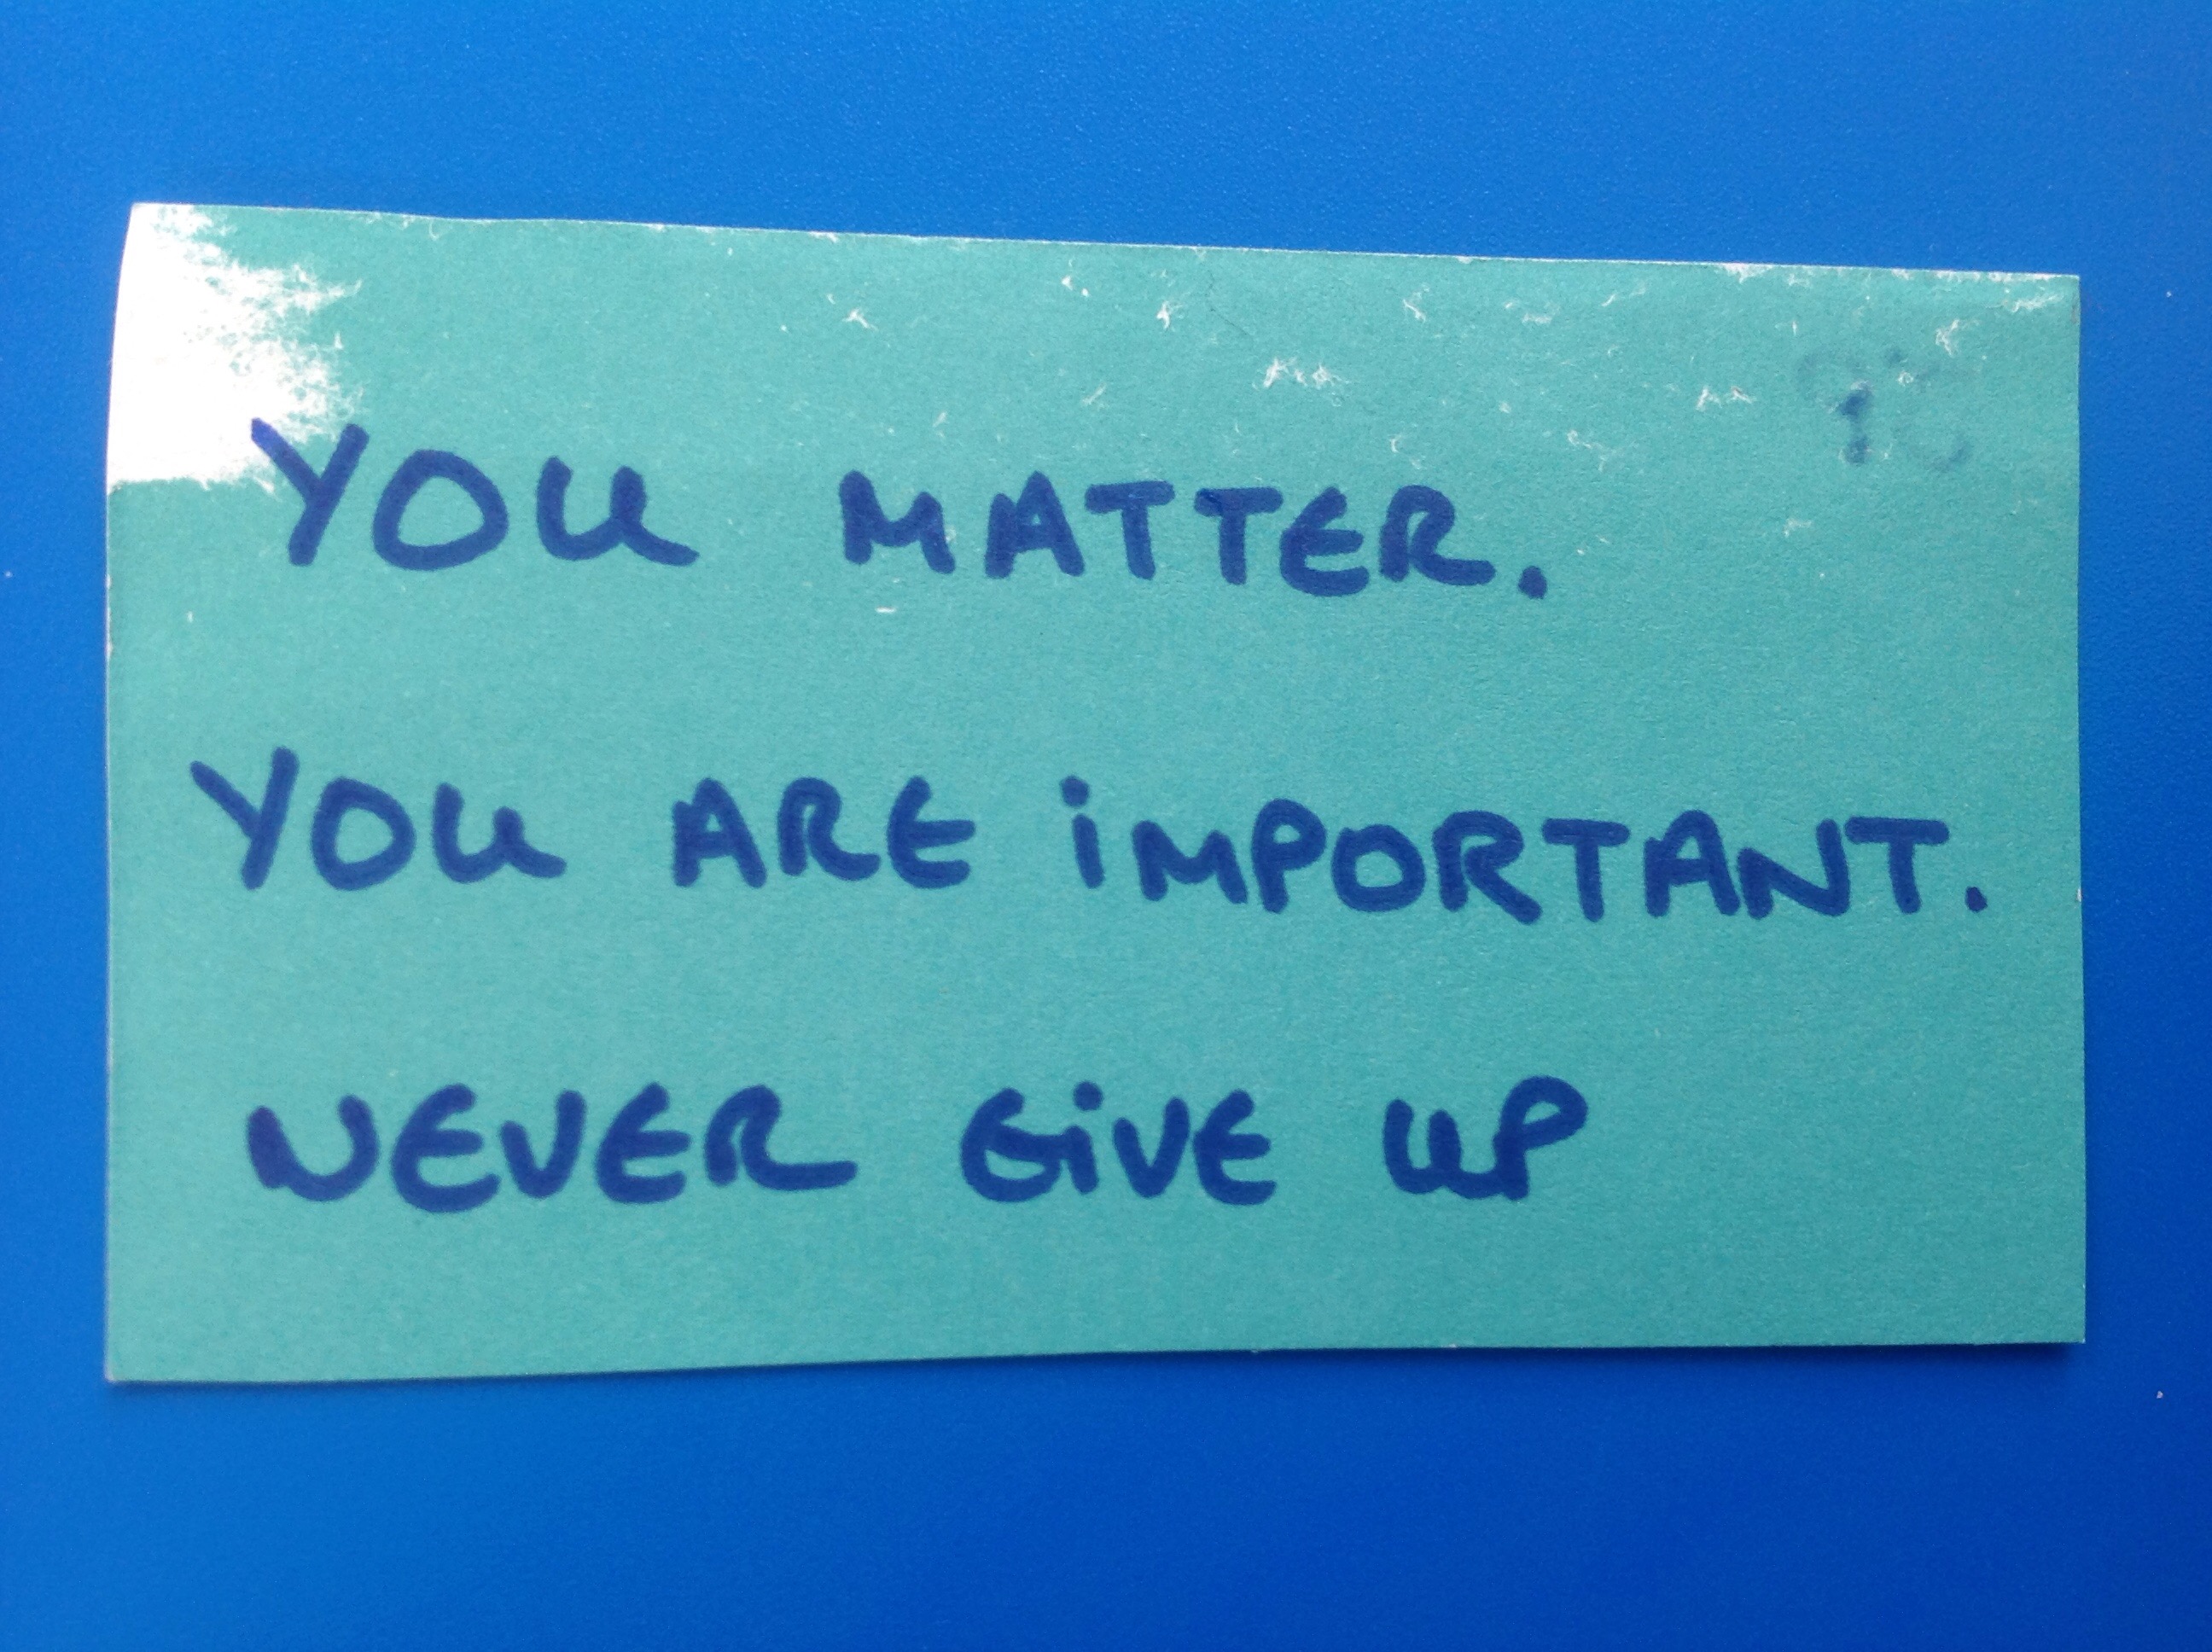 YOU MATTER.
YOU ARE iMPORTANT.
NEVER GiVE UP